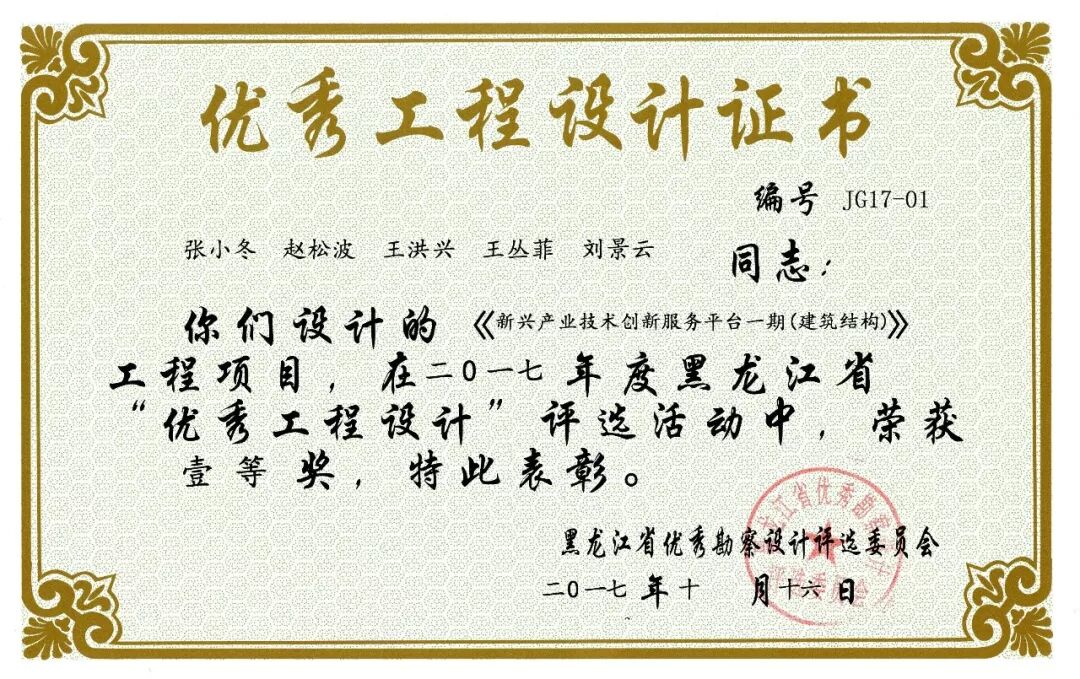 优秀工程设计证书
编号 JG17-01
张小冬 赵松波 王洪兴 王丛菲 刘景云 同志：
你们设计的《新兴产业技术创新服务平台一期(建筑结构)》
工程项目，在二0一七年度黑龙江省
“优秀工程设计”评选活动中，荣获
壹等奖，特此表彰。
黑龙江省优秀勘察设计评选委员会
二0一七年十 月十六日
龙江省优秀勘察设计
评选委员会